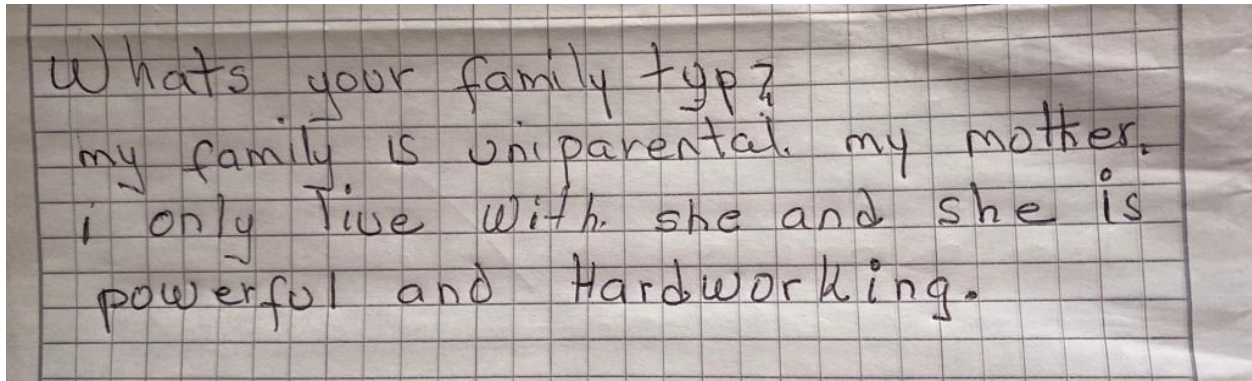 Whats your family typ?
my family is uniparental. my mother.
i only live with. she and she is
powerful and Hardworking.